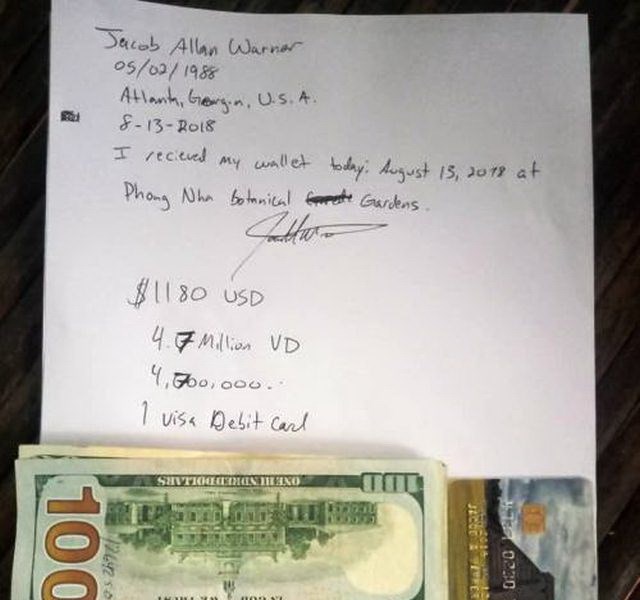 Jacob Allan Warner
05/02/1988
Atlanta, Georgia, U.S.A.
8-13-2018
I recieved my wallet today: August 13, 2018 at
Phong Nha botanical Gardens.
$1180 USD
4.7 Million VD
4,700,000..
1 visa Debit card
ONE HUNDRED DOLLARS
100
100
IN GOD WE TRUST